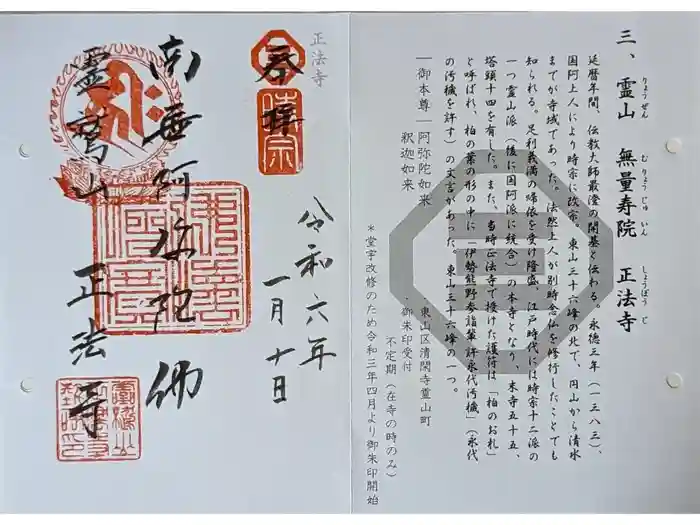 三、霊山 無量寿院 正法寺
りょうぜん むりょうじゅいん しょうぼうじ
延暦年間、伝教大師最澄の開基と伝わる。永徳三年（一三八三）、
国阿上人により時宗に改宗。東山三十六峰の北で、円山から清水
までが寺域であった。法然上人が別時念仏を修行したことでも
知られる。足利義満の帰依を受け隆盛。江戸時代には時宗十二派の
一つ霊山派（後に国阿派に統合）の本寺となり、末寺五十五、
塔頭十四を有した。また、当時正法寺で授けた護符は「柏のお札」
と呼ばれ、柏の葉の形の中に「伊勢熊野参詣輩許永代汚穢」（永代
の汚穢を許す）の文言があった。東山三十六峰の一つ。
―御本尊―阿弥陀如来
釈迦如来
・東山区清閑寺霊山町
・御朱印受付
不定期（在寺の時のみ）
＊堂宇改修のため令和三年四月より御朱印開始
正法寺
奉拝
時宗
令和六年
一月十日
南無阿弥陀佛
霊鷲山 正法寺